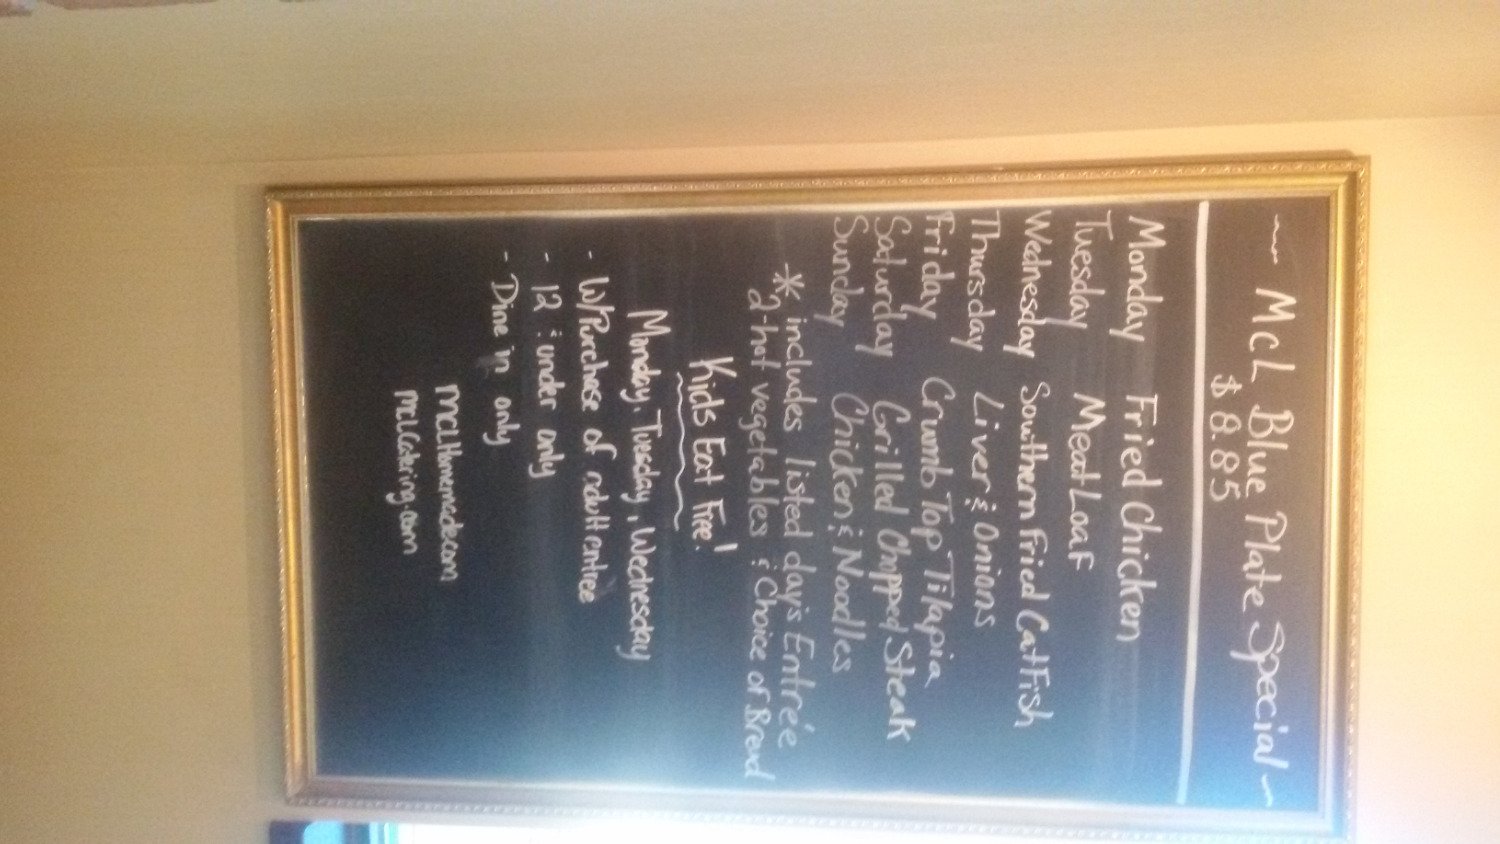 ~ McL Blue Plate Special ~
$ 8.85
Monday Fried Chicken
Tuesday Meat Loaf
Wednesday Southern Fried CatFish
Thursday Liver & Onions
Friday Crumb Top Tilapia
Saturday Grilled Chopped Steak
Sunday Chicken & Noodles
* includes listed day's Entrée
2-hot vegetables & Choice of Bread
Kids Eat Free!
Monday, Tuesday, Wednesday
- W/Purchase of adult entree
- 12 & under only
- Dine in only
MCLHomemade.com
MCLCatering.com